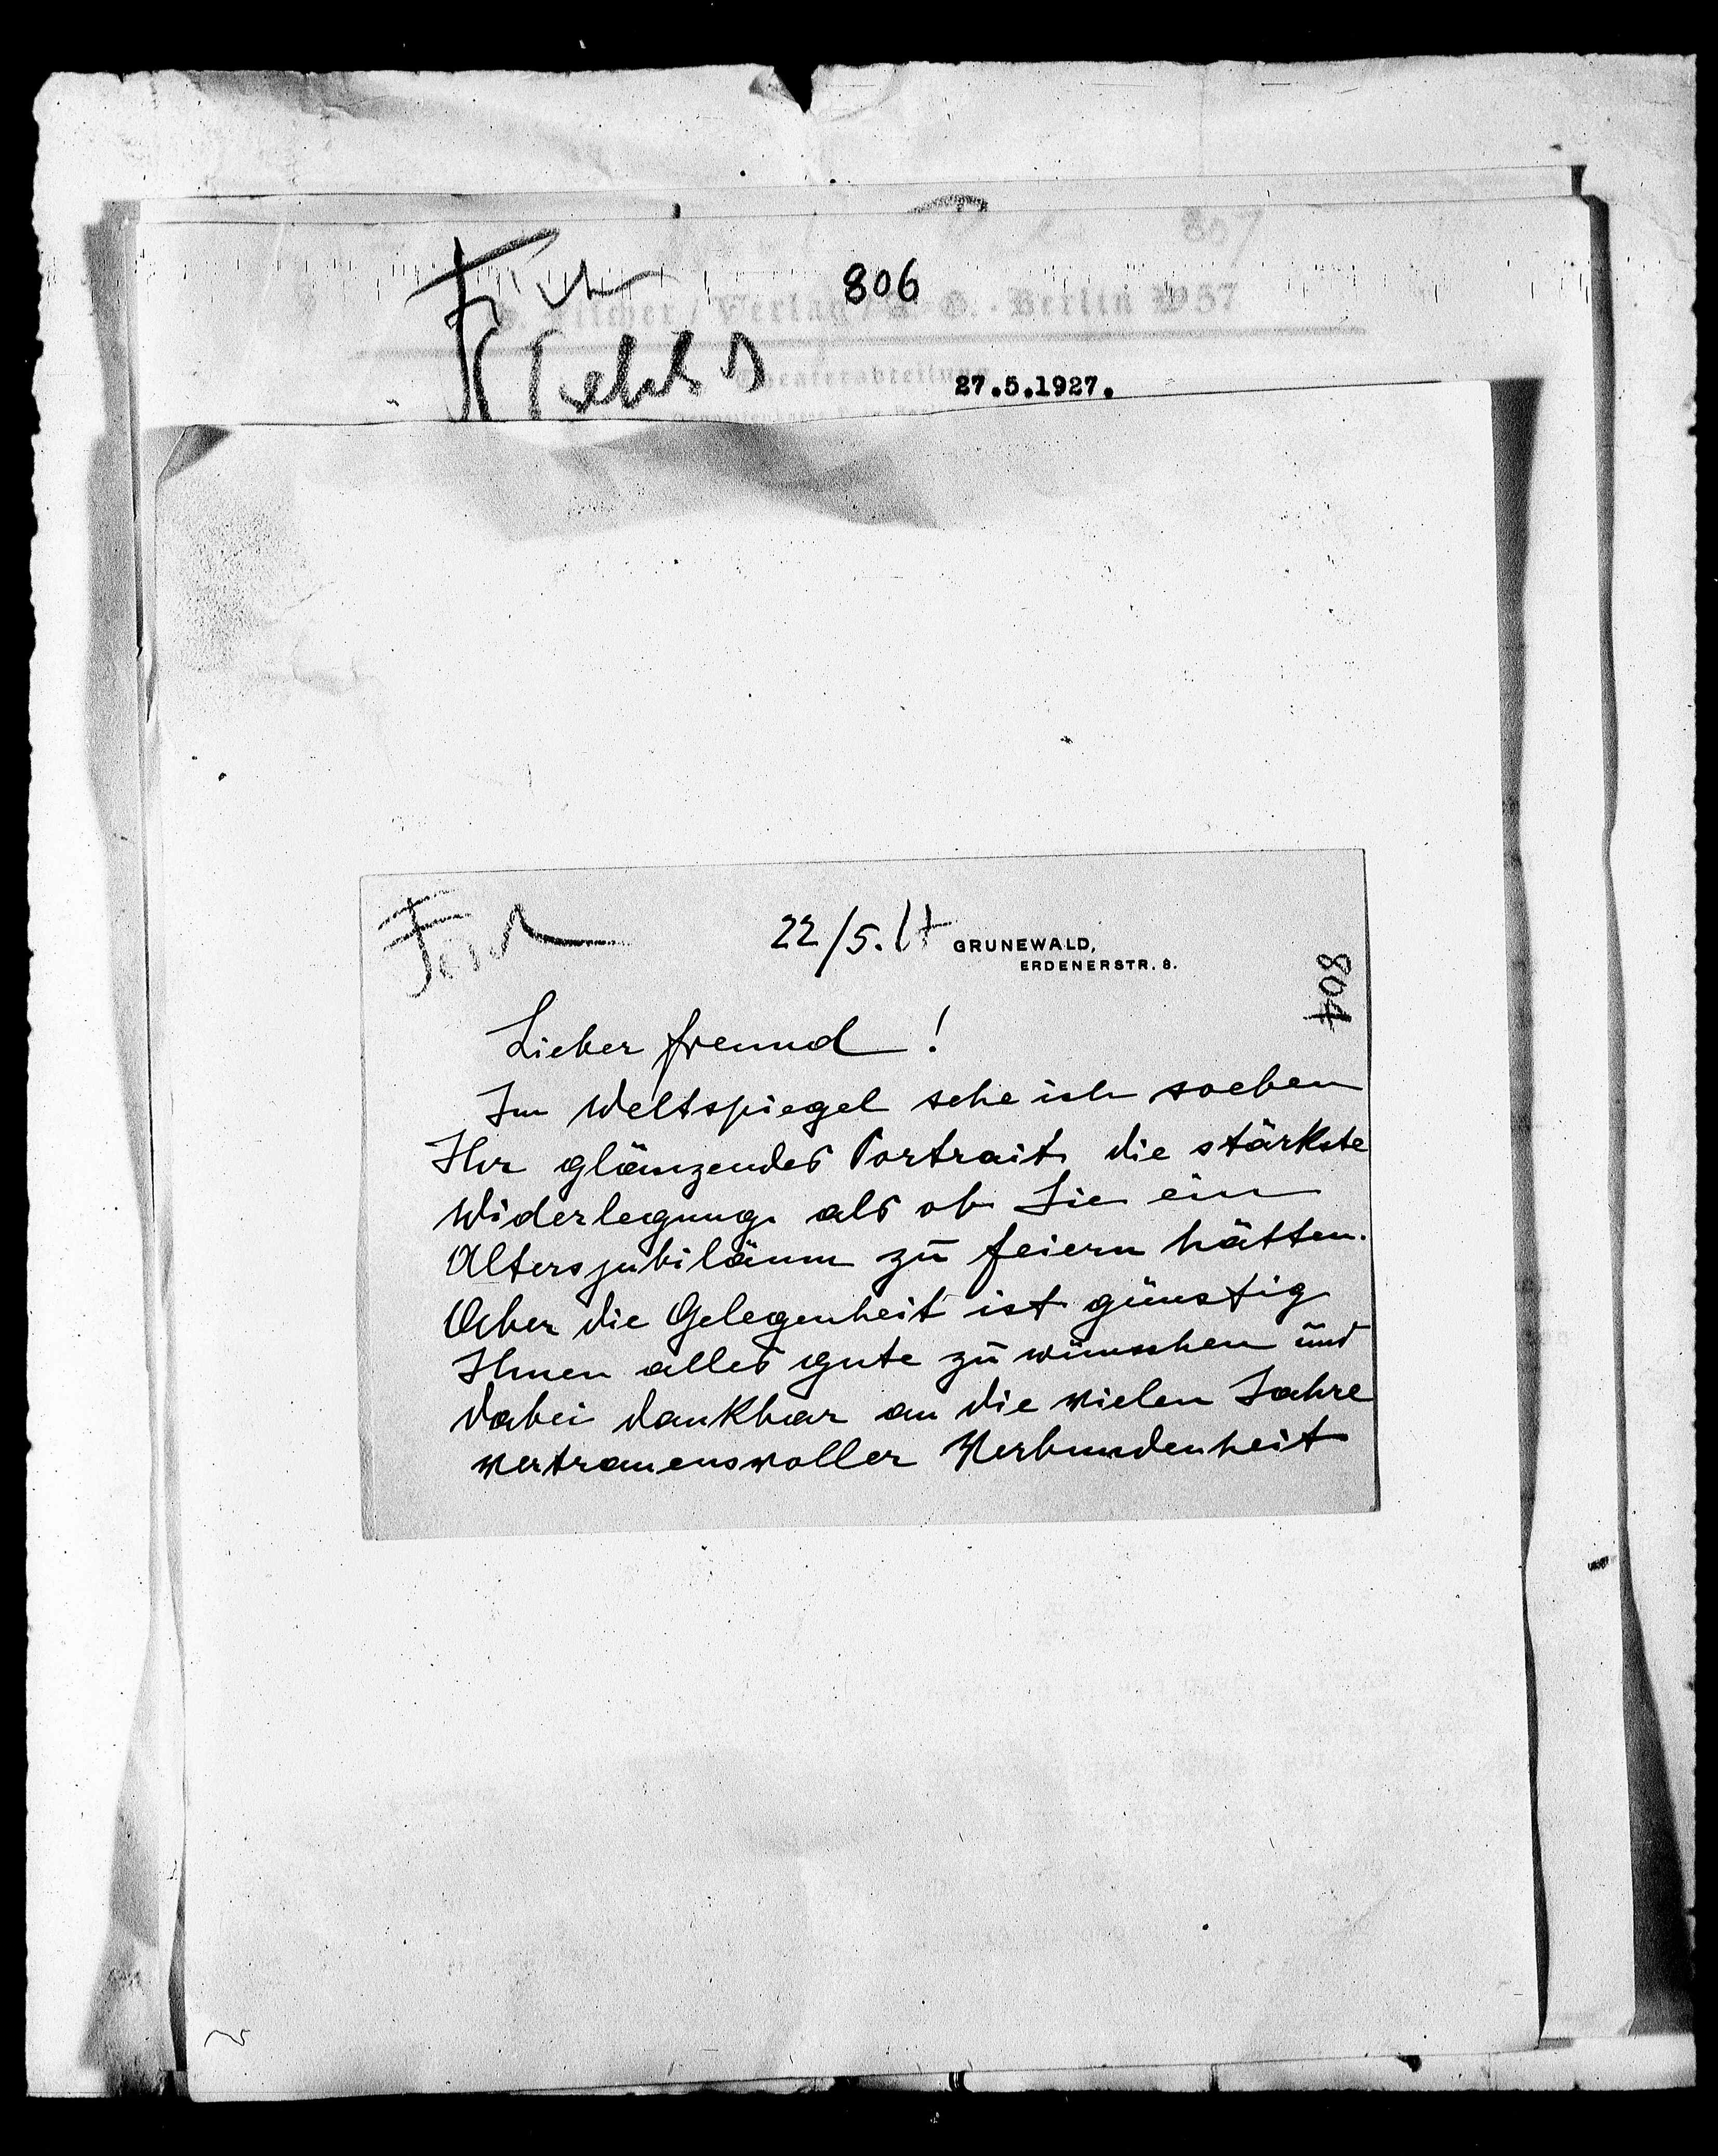 806
S. Fischer / Verlag / A.-G. - Berlin W57
Theaterabteilung
27.5.1927.
22/5.
GRUNEWALD,
ERDENERSTR. 8.
804
Lieber Freund!
Im Weltspiegel sehe ich soeben
Ihr glänzendes Portrait, die stärkste
Widerlegung, als ob Sie ein
Altersjubiläum zu feiern hätten.
Aber die Gelegenheit ist günstig
Ihnen alles gute zu wünschen und
dabei dankbar an die vielen Jahre
vertrauensvoller Verbundenheit